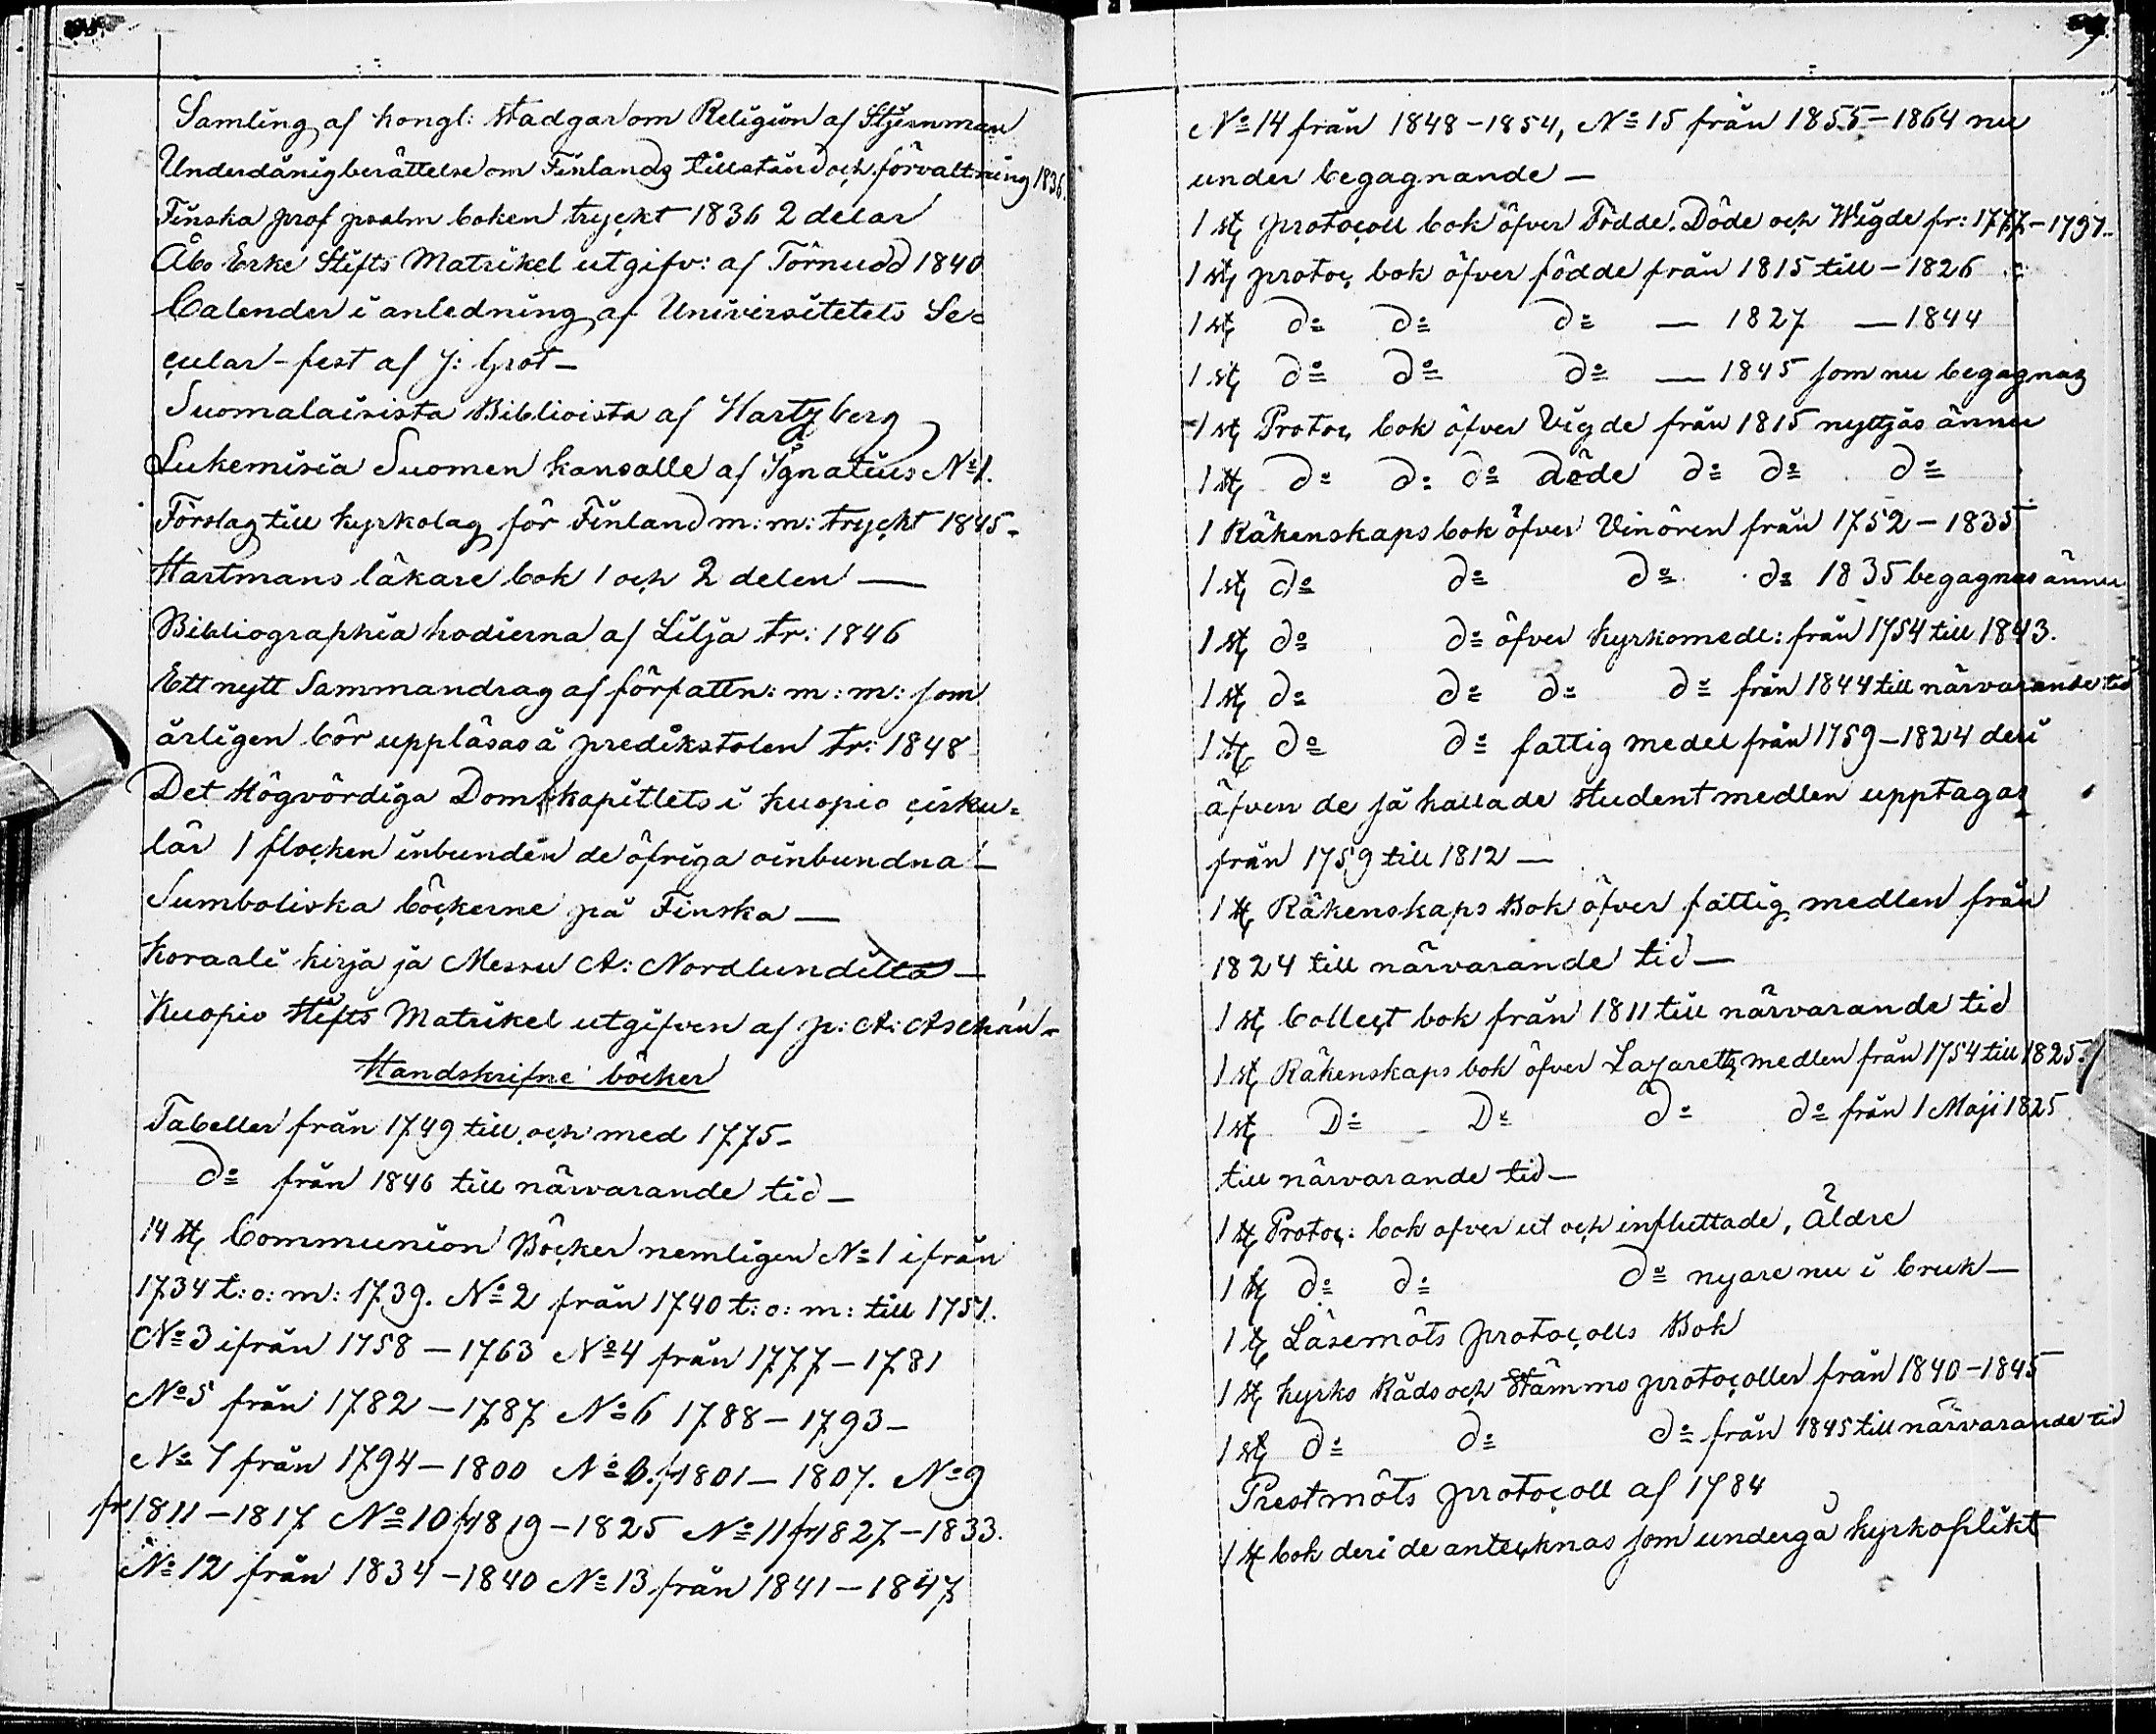 Samling af kongl: stadgar om Religion af Stjernman
Underdånig berättelse om Finlands tillstånd och förvaltning 1836.
Finska prof psalm boken tryckt 1836 2 delar
Åbo Erke Stifts Matrikel utgifv: af Törnudd 1840
Calender i anledning af Universitetets Se-
cular-fest af J: Grot —
Suomalaisista Biblioista af Hartzberg
Lukemisia Suomen kansalle af Ignatius No 1.
Förslag till kyrkolag för Finland m: m: tryckt 1845-
Hartmans läkare bok 1 och 2 delen —
Bibliographia hodierna af Lilja tr: 1846
Ett nytt Sammandrag af författn: m: m: som
årligen bör uppläsas å predikstolen tr: 1848
Det Högvördiga Domkapitlets i Kuopio cirku=
lär 1 flocken inbunden de öfriga oinbundna —
Sumboliska böckerne på Finska —
Koraali kirja ja Messu A: Nordlundilta —
Kuopio Stifts Matrikel utgifven af J: A: Aschan -
Handskrifne böcker
Tabeller från 1749 till och med 1775-
do från 1846 till närvarande tid —
14 st Communion Böcker nemligen No 1 ifrån
1734 t: o: m: 1739. No 2 från 1740 t: o: m: till 1751.
No 3 ifrån 1758 — 1763 No 4 från 1777 — 1781
No 5 från 1782 — 1787 No 6 1788 — 1793 —
No 7 från 1794 — 1800 No 8. fr 1801 — 1807. No 9
fr 1811 — 1817 No 10 fr 1819 — 1825 No 11 fr 1827 — 1833.
No 12 från 1834 — 1840 No 13 från 1841 — 1847
No 14 från 1848 - 1854, No 15 från 1855 - 1864 nu
under begagnande —
1 st protocoll bok öfver Födde. Döde och Wigde fr: 1777 - 1797 -
1 st protoc bok öfver födde från 1815 till - 1826
1 st do do do — 1827 — 1844
1 st do do do — 1845 som nu begagnas
1 st Protoc bok öfver Vigde från 1815 nyttjas ännu
1 st do do do döde do do do
1 Räkenskaps bok öfver Vinören från 1752 - 1835
1 st do do do do 1835 begagnas ännu
1 st do do öfver kyrkomedl: från 1754 till 1843.
1 st do do do do från 1844 till närvarande tid
1 st do do fattig medel från 1759 - 1824 deri
äfven de så kallade student medlen upptagas
från 1759 till 1812 —
1 st Räkenskaps Bok öfver fattig medlen från
1824 till närvarande tid —
1 st Collect bok från 1811 till närvarande tid
1 st Räkenskaps bok öfver Lazaretts medlen från 1754 till 1825.
1 st Do Do do do från 1 Maji 1825
till närvarande tid —
1 st Protoc: bok öfver ut och influttade, äldre
1 st do do do nyare nu i bruk —
1 st Läsemöts protocolls Bok
1 st kyrko Råds och Stämmo protocoller från 1840 - 1845
1 st do do do från 1845 till närvarande tid
Prestmöts protocoll af 1784
1 st bok deri de antecknas som undergå kyrkoplikt